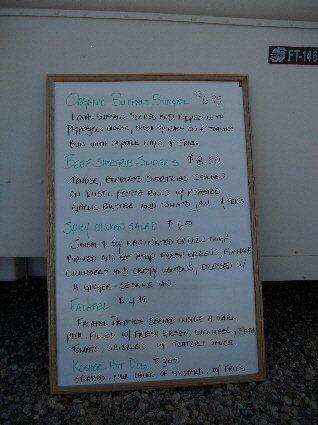 FT-146
ORGANIC BUFFALO BURGER $6.95
LOCAL BUFFALO SEARED AND TOPPED WITH
CHEESE, FRESH SPINACH ON A TOASTED
BUN WITH CHIPOTLE MAYO & FRIES
BEEF SHORTRIB SLIDERS $8.50
TENDER, BONELESS SHORTRIBS SERVED
ON RUSTIC PETITE ROLLS W/ ROASTED
GARLIC BUTTER AND TOMATO JAM. & FRIES
SPICY CHICKEN SALAD $
& SOY MARINATED CHICKEN THIGH,
ROASTED AND SET ATOP FRESH GREENS, EDAMAME
CUCUMBERS AND CRISPY WONTONS, DRESSED W/
A GINGER-SESAME VIN.
FALAFEL $4.95
FALAFEL PATTIES SERVED INSIDE A WARM
PITA. FILLED W/ FRESH GREENS, CUCUMBER, FETA,
TOMATO. DRIZZLED W/ TZATZIKI SAUCE.
KOSHER HOT DOG $3.95
STEAMED, YOUR CHOICE OF MUSTARD. W/ FRIES